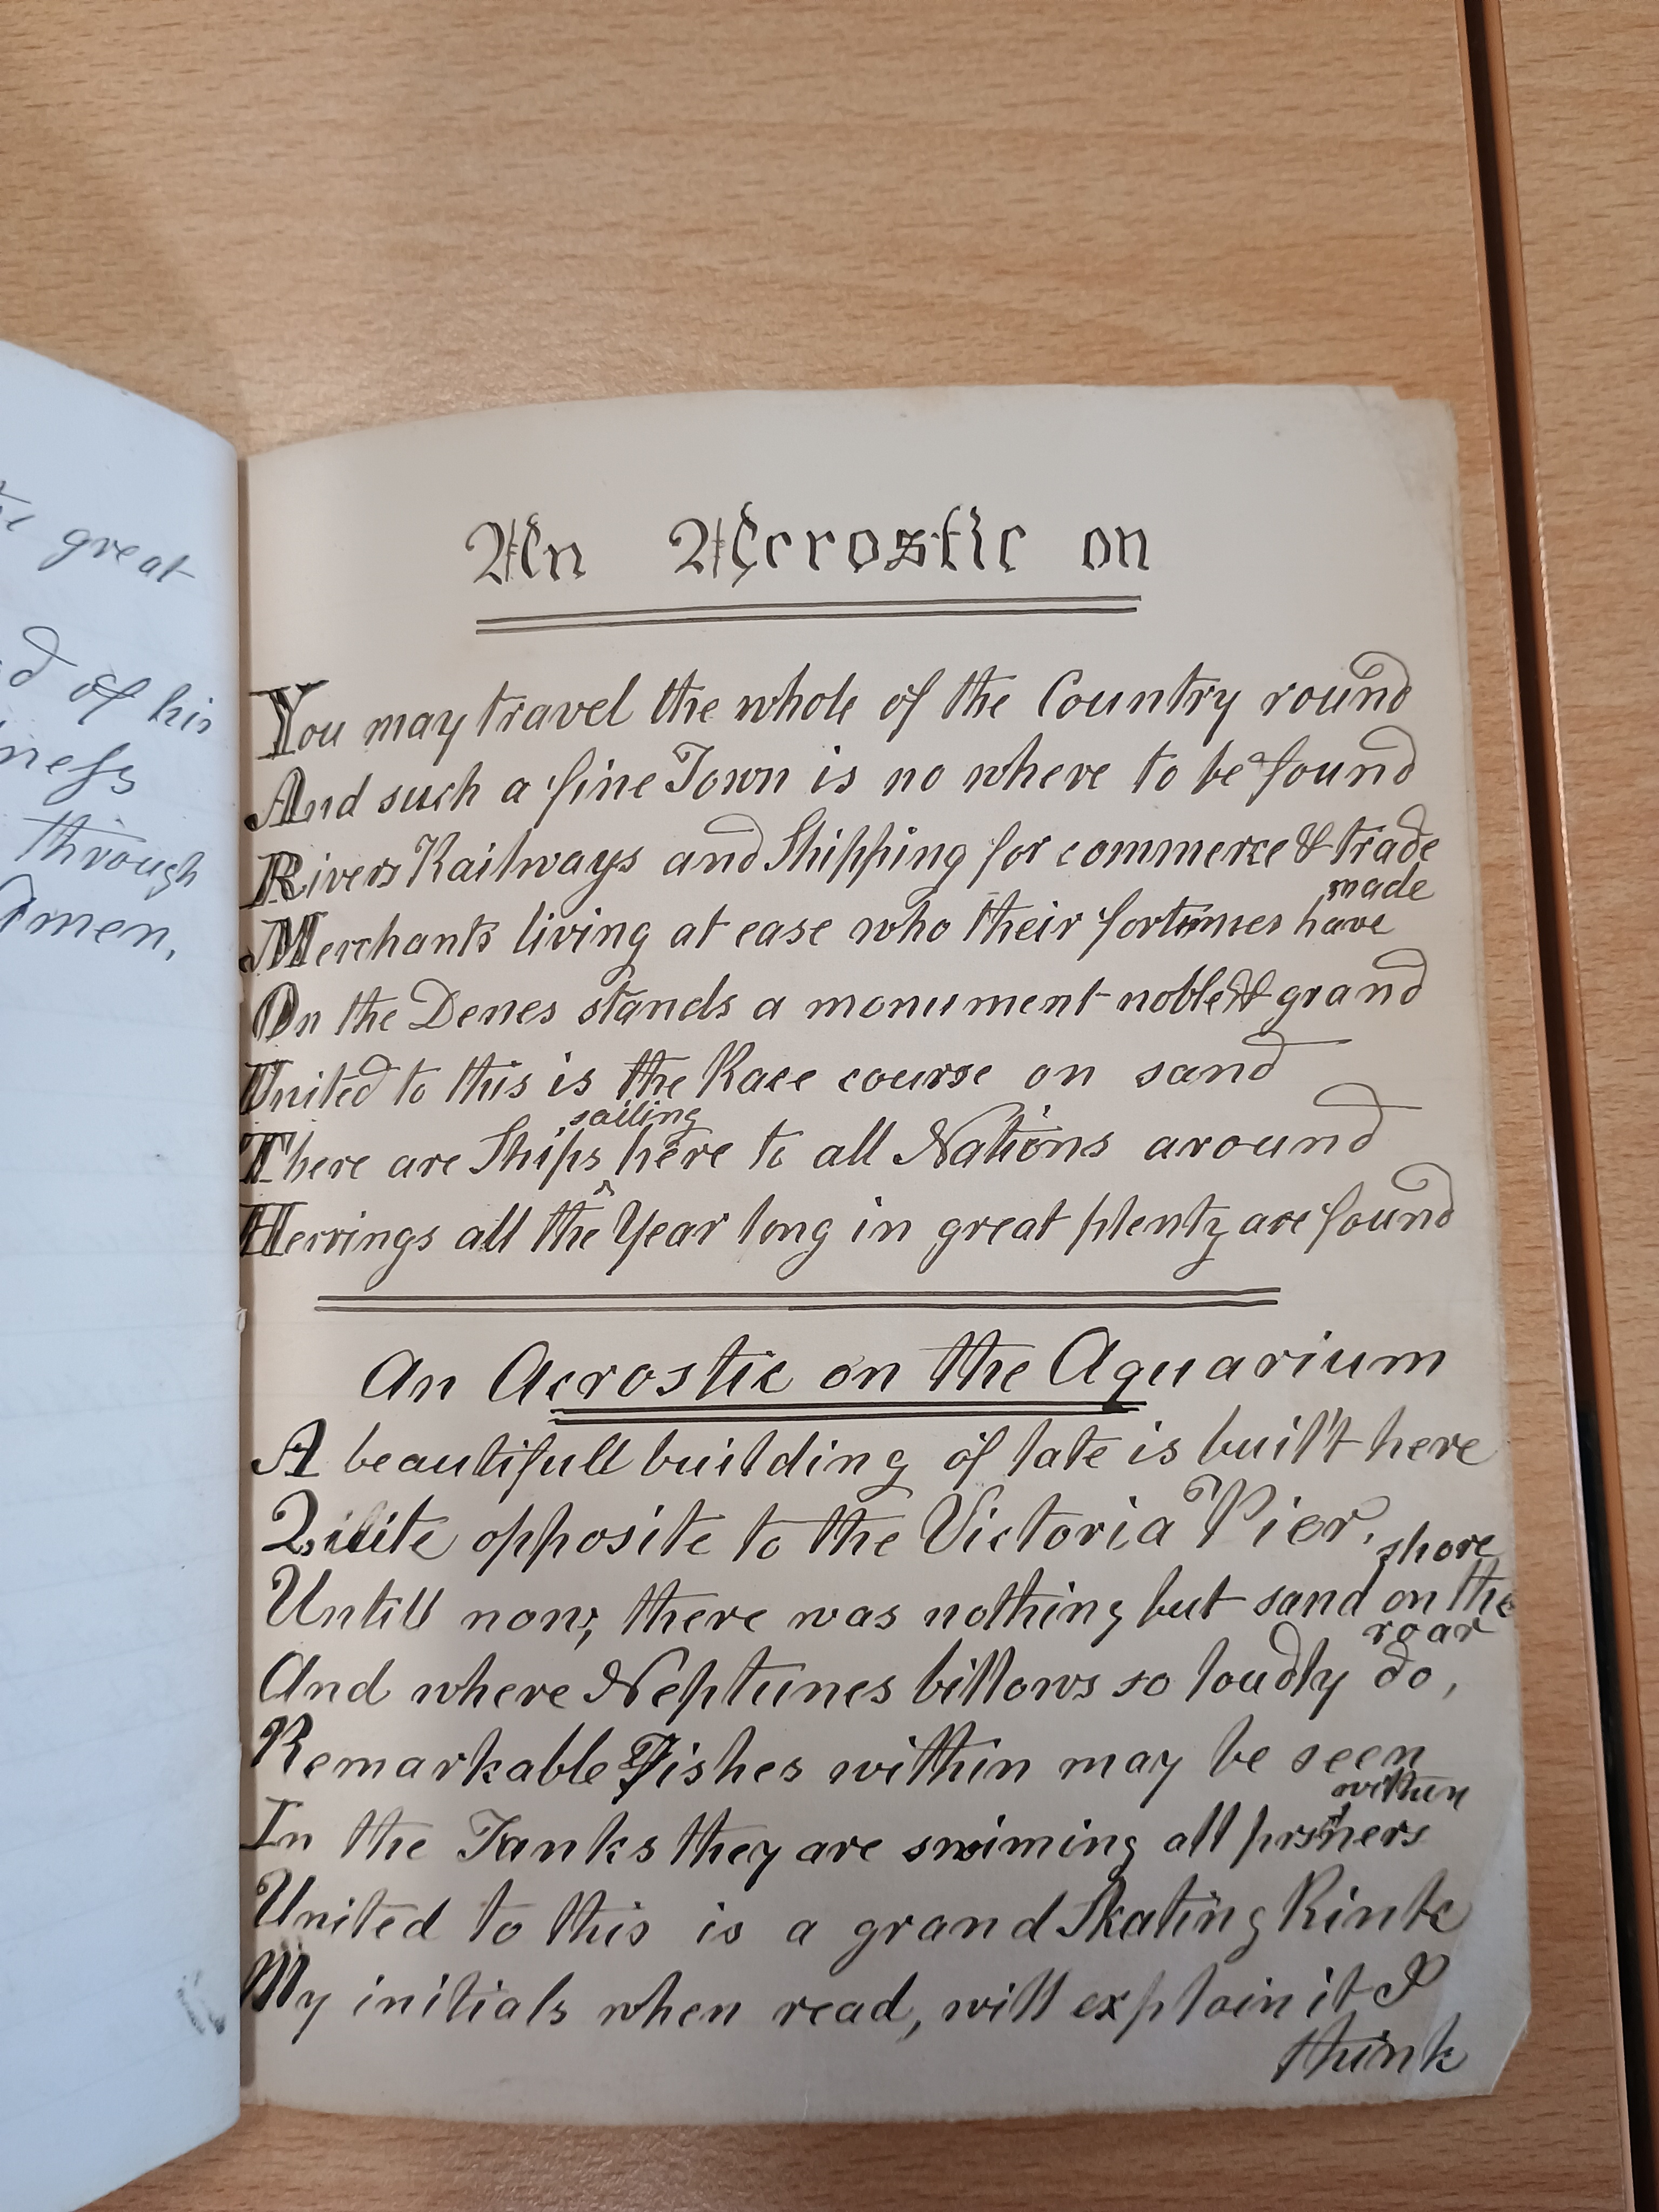 great
of his
ness
through
Amen,
An Acrostic on
You may travel the whole of the Country round
And such a fine Town is no where to be found
Rivers Railways and Shipping for commerce & trade
made
Merchants living at ease who their fortunes have
On the Denes stands a monument noble & grand
United to this is the Race course on sand
sailing
There are Ships ^ here to all Nations around
Herrings all the Year long in great plenty are found
An Acrostic on the Aquarium
A beautifull building of late is built here
Quite opposite to the Victoria Pier.
shore
Untill now, there was nothing but sand on the
roar
And where Neptunes billows so loudly do,
Remarkable Fishes within may be seen
within
In the Tanks they are swiming all
United to this is a grand Skating Rink
My initials when read, will explain it I
think